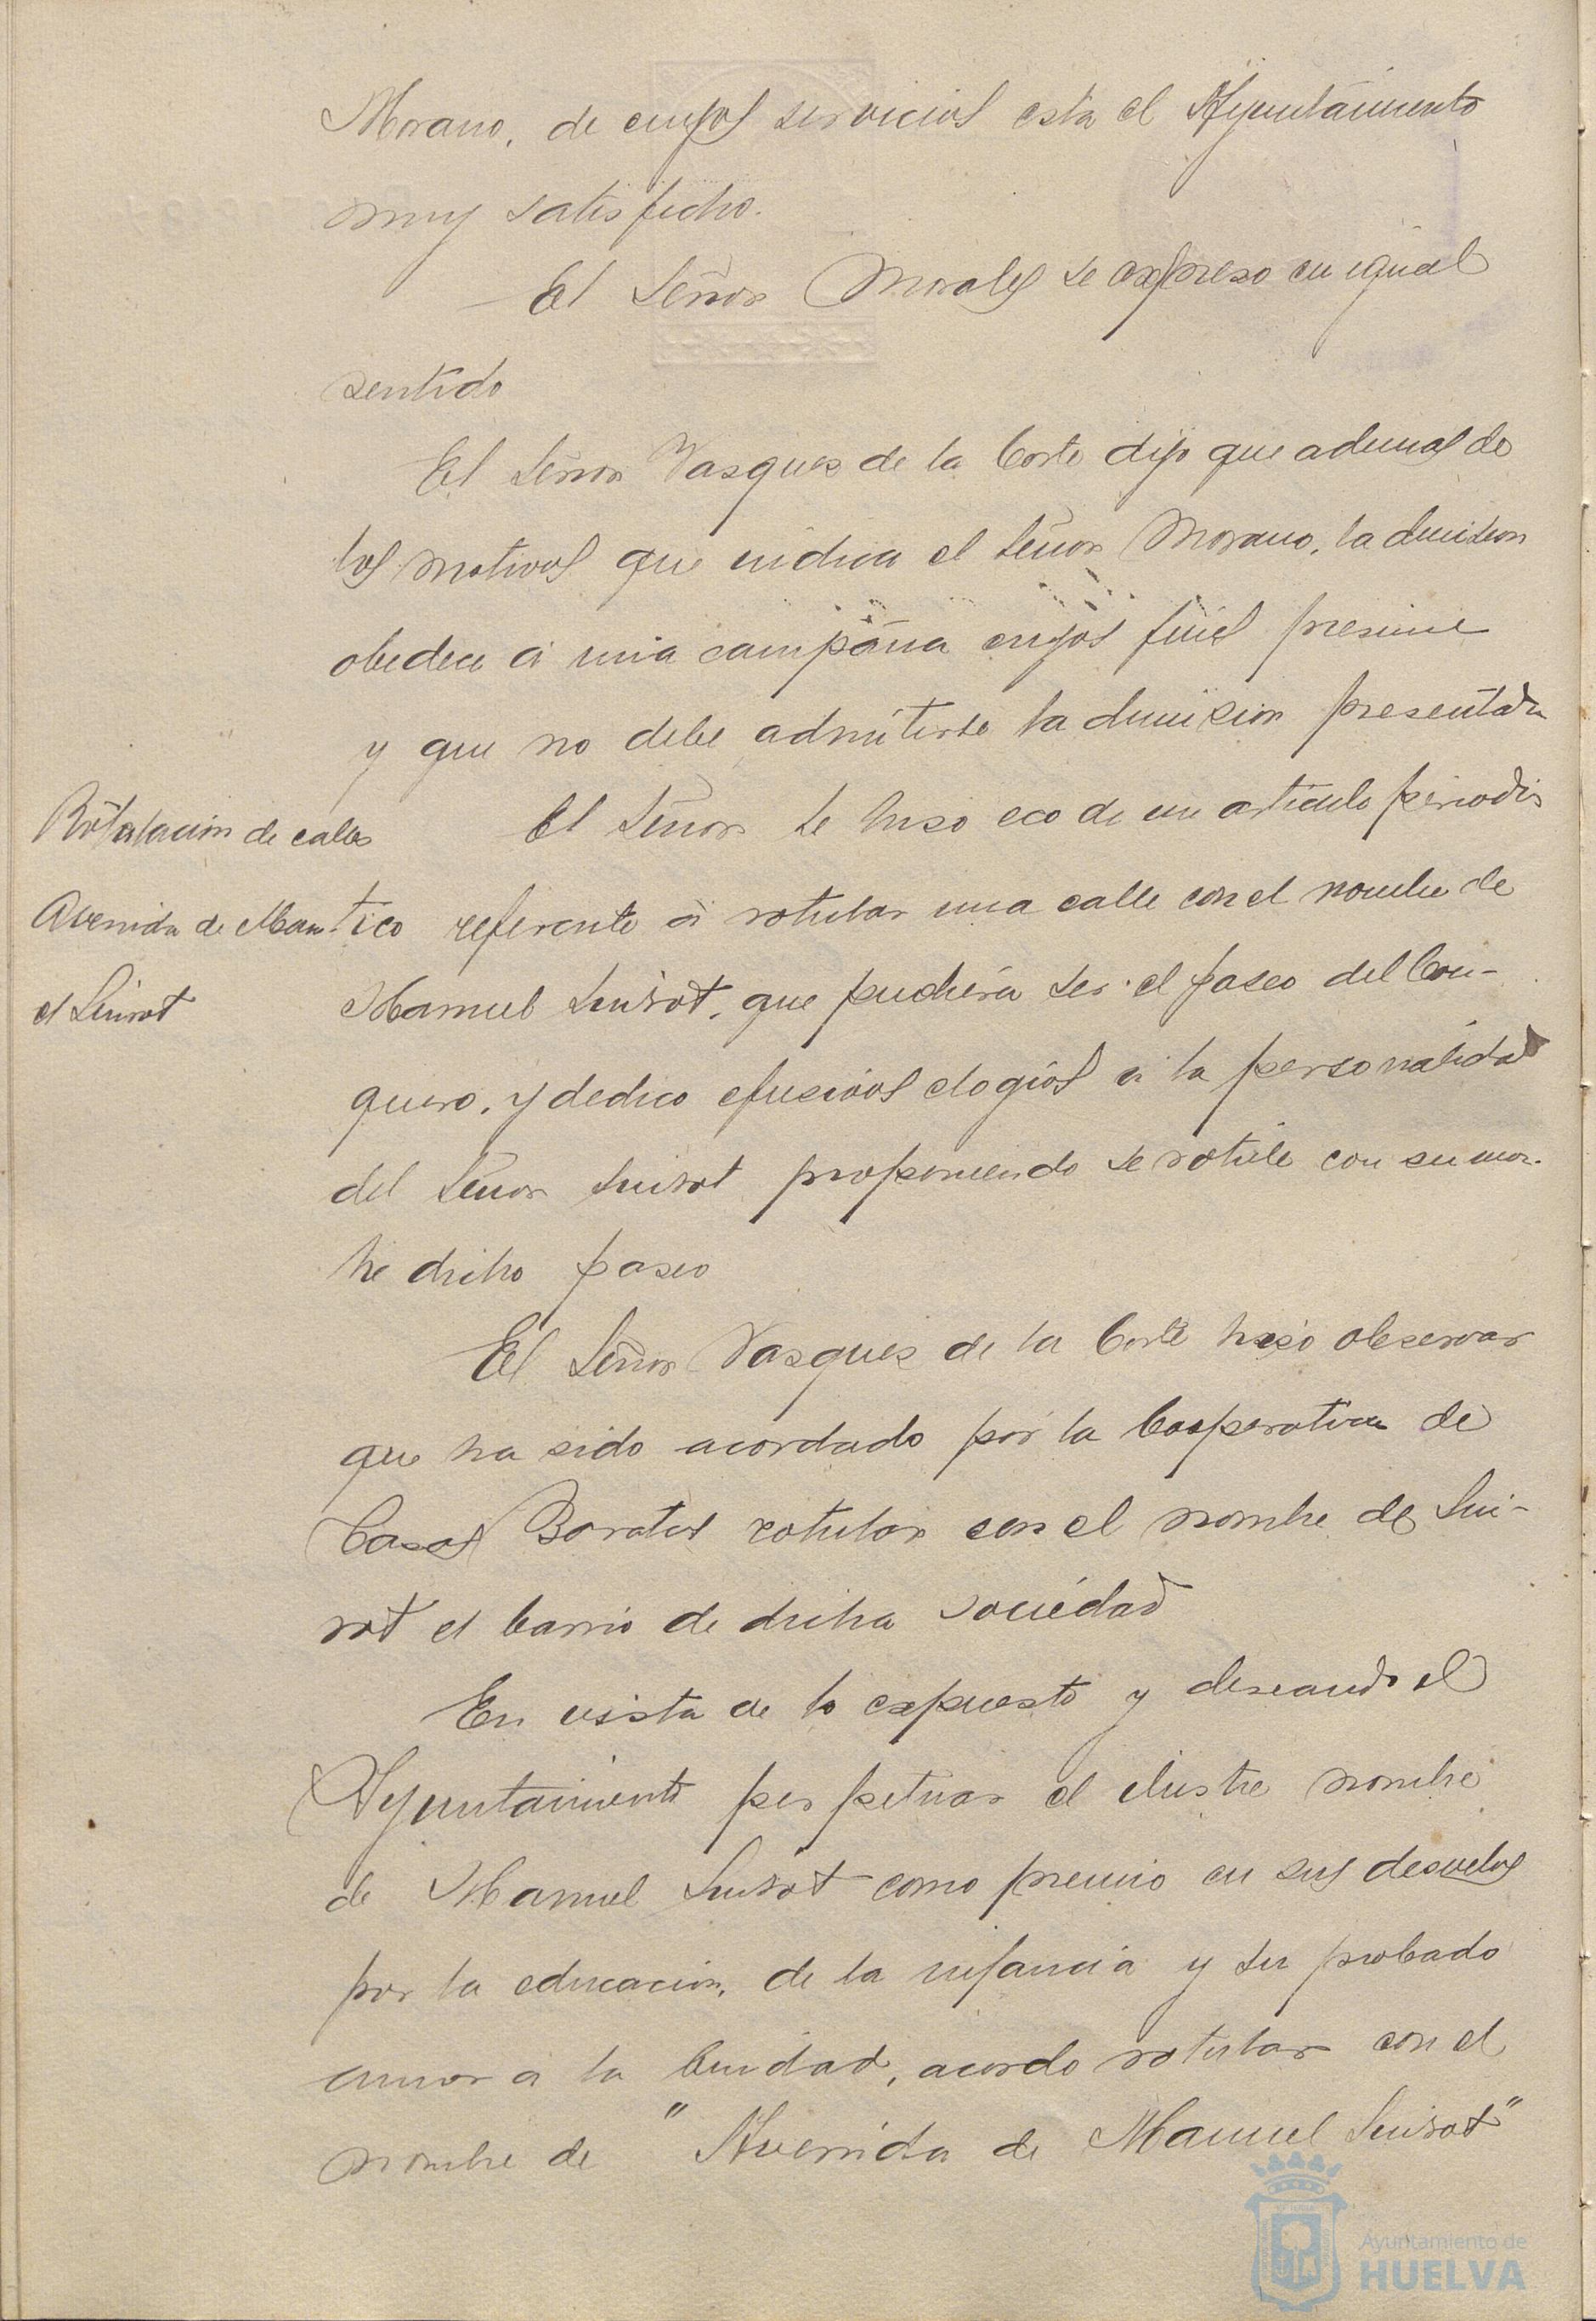 Morano, de cuyos servicios está el Ayuntamiento
muy satisfecho.
El Señor Morales se expreso en igual
sentido
El Señor Vasques de la Corte dijo que ademas de
los motivos que indica el Señor Morano, la dimision
obedece á una campaña cuyos fines presume
y que no debe admitirse la dimision presentada
Rotulacion de calles
Avenida de Manu
el Siurot
El Señor se hiso eco de un articulo periodis
tico referente á rotular una calle con el nombre de
Manuel Siurot, que pudiera ser el paseo del Con-
quero, y dedico efusivos elogios á la personalidad
del Señor Siurot proponiendo se rotule con su nom-
bre dicho paseo
El Señor Vasques de la Corte hiso observar
que ha sido acordado por la Cooperativa de
Casas Baratas rotular con el nombre de Siu-
rot el barrio de dicha sociedad
En vista de lo expuesto y deseando el
Ayuntamiento perpetuar el ilustre nombre
de Manuel Siurot como premio en sus desvelos
por la educacion, de la infancia y su probado
amor a la Ciudad, acordo rotular con el
nombre de "Avenida de Manuel Siurot"
Ayuntamiento de
HUELVA